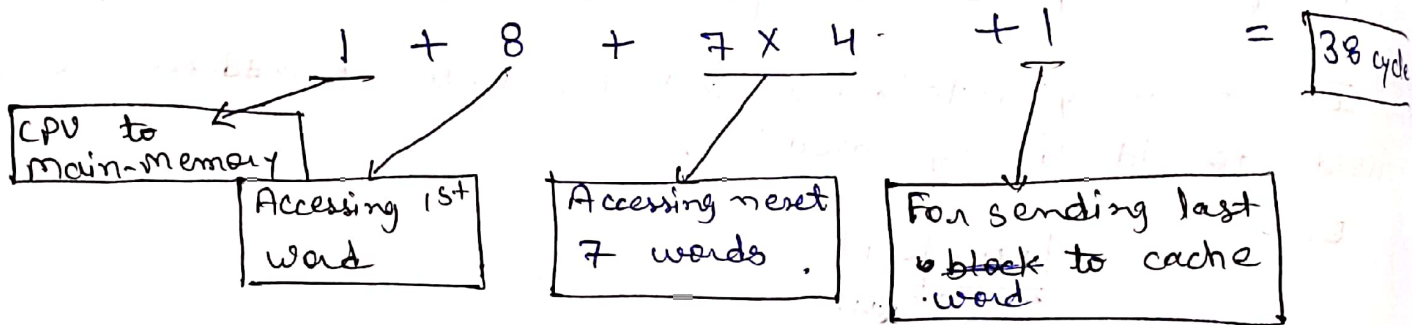 1 + 8 + 7 × 4 + 1 = 38 cycle
CPU to
Main-memory
Accessing 1st
word
Accessing next
7 words.
For sending last
block to cache
word.